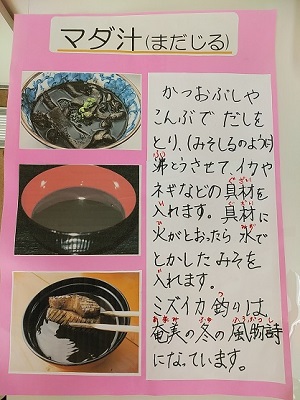 マダ汁(まだじる)
かつおぶしや
こんぶで だしを
とり、(みそしるのように)
沸とうさせて イカや
ネギなどの 具材を
入れます。具材に
火がとおったら 水で
とかした みそを
入れます。
ミズイカ 釣りは
奄美の 冬の 風物詩
になっています。